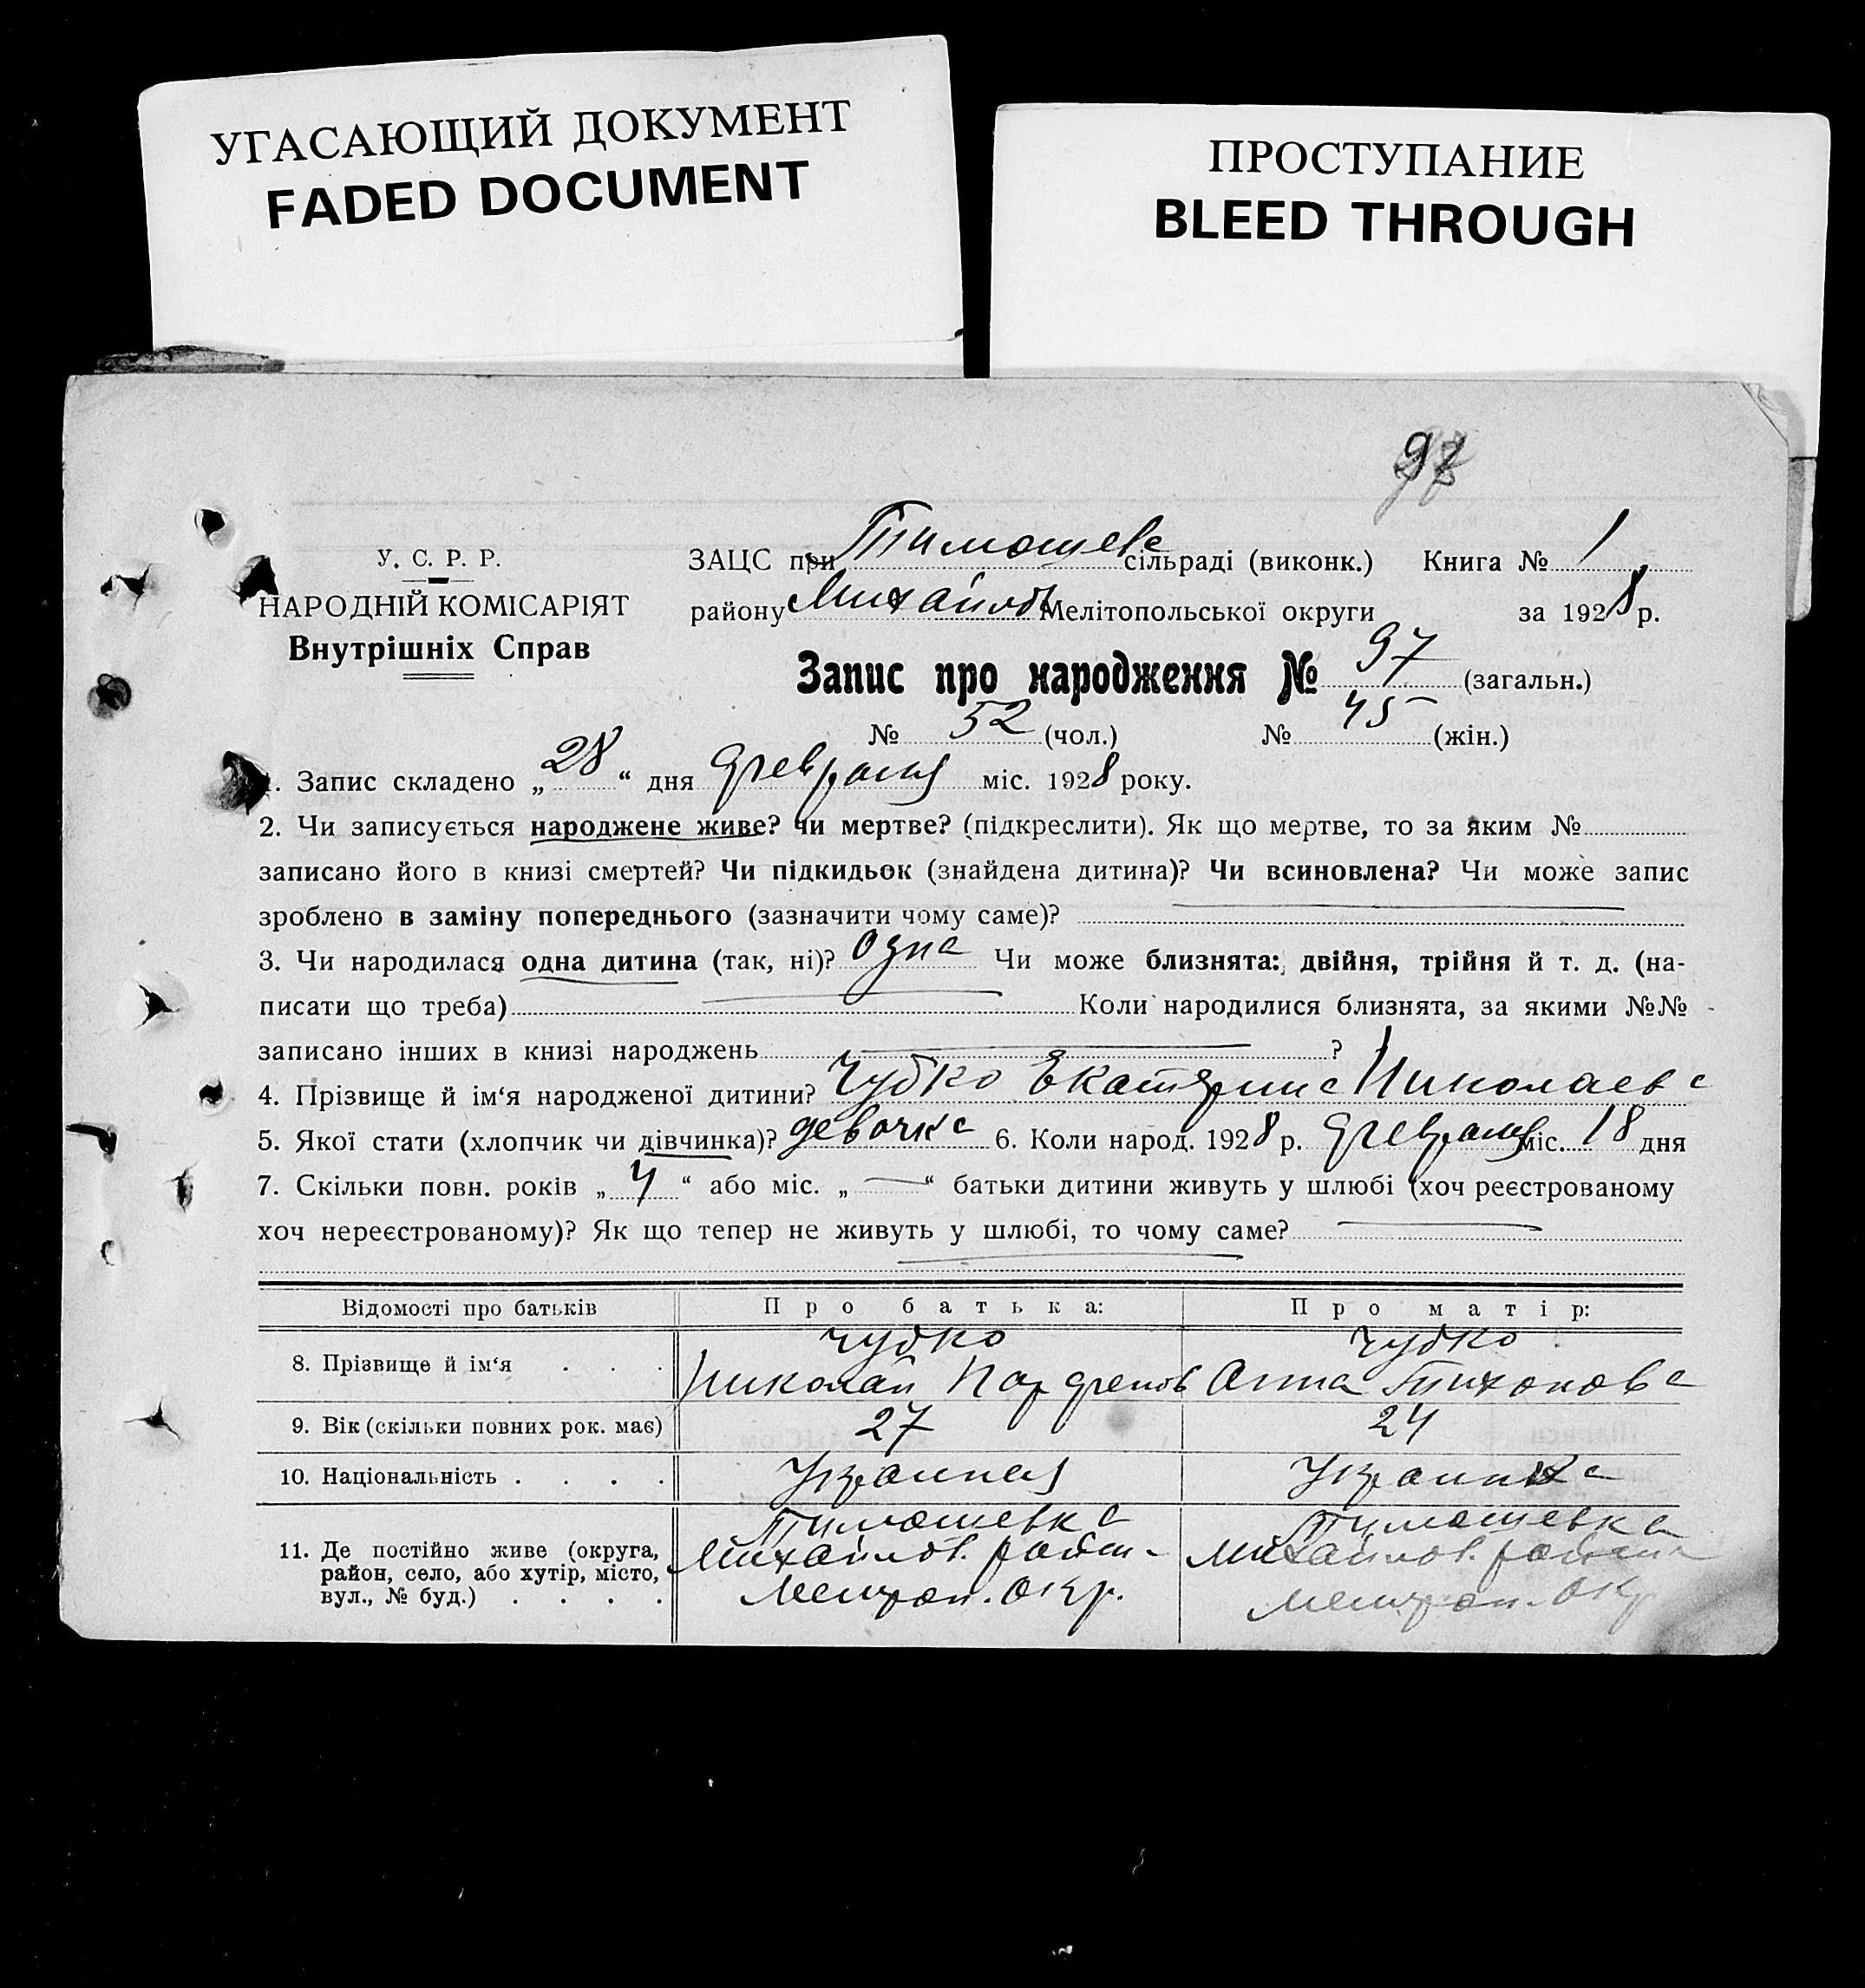 УГАСАЮЩИЙ ДОКУМЕНТ
FADED DOCUMENT
ПРОСТУПАНИЕ
BLEED THROUGH
97
У. С. Р. Р.
НАРОДНІЙ КОМІСАРІЯТ
Внутрішніх Справ
ЗАЦС при Тимошев сільраді (виконк.) Книга № 1
району Михайлов Мелітопольської округи за 1928 р.
Запис про народження № 97 (загальн.)
№ 52 (чол.) № 45 (жін.)
1. Запис складено „ 28 “ дня февраля міс. 1928 року.
2. Чи записується народжене живе? чи мертве? (підкреслити). Як що мертве, то за яким №
записано його в книзі смертей? Чи підкидьок (знайдена дитина)? Чи всиновлена? Чи може запис
зроблено в заміну попереднього (зазначити чому саме)?
3. Чи народилася одна дитина (так, ні)? одна Чи може близнята: двійня, трійня й т. д. (на-
писати що треба) Коли народилися близнята, за якими №№
записано інших в книзі народжень ?
4. Прізвище й ім‘я народженої дитини? Чубко Екатерина Николаева
5. Якої стати (хлопчик чи дівчинка)? девочка 6. Коли народ. 1928 р. февраля міс. 18 дня
7. Скільки повн. років „ 4 “ або міс. „ — “ батьки дитини живуть у шлюбі (хоч реєстрованому
хоч нереєстрованому)? Як що тепер не живуть у шлюбі, то чому саме?
Відомості про батьків Про батька: Про матір:
8. Прізвище й ім‘я . . . Чубко Николай Парфенов Чубко Анна Тихонова
9. Вік (скільки повних рок. має) 27 24
10. Національність . . . . Украинец Украинка
11. Де постійно живе (округа, Тимошевка Тимошевка
район, село, або хутір, місто, Михайлов. район Михайлов. район
вул., № буд.) . . . . Мелитоп. окр. Мелитоп. окр